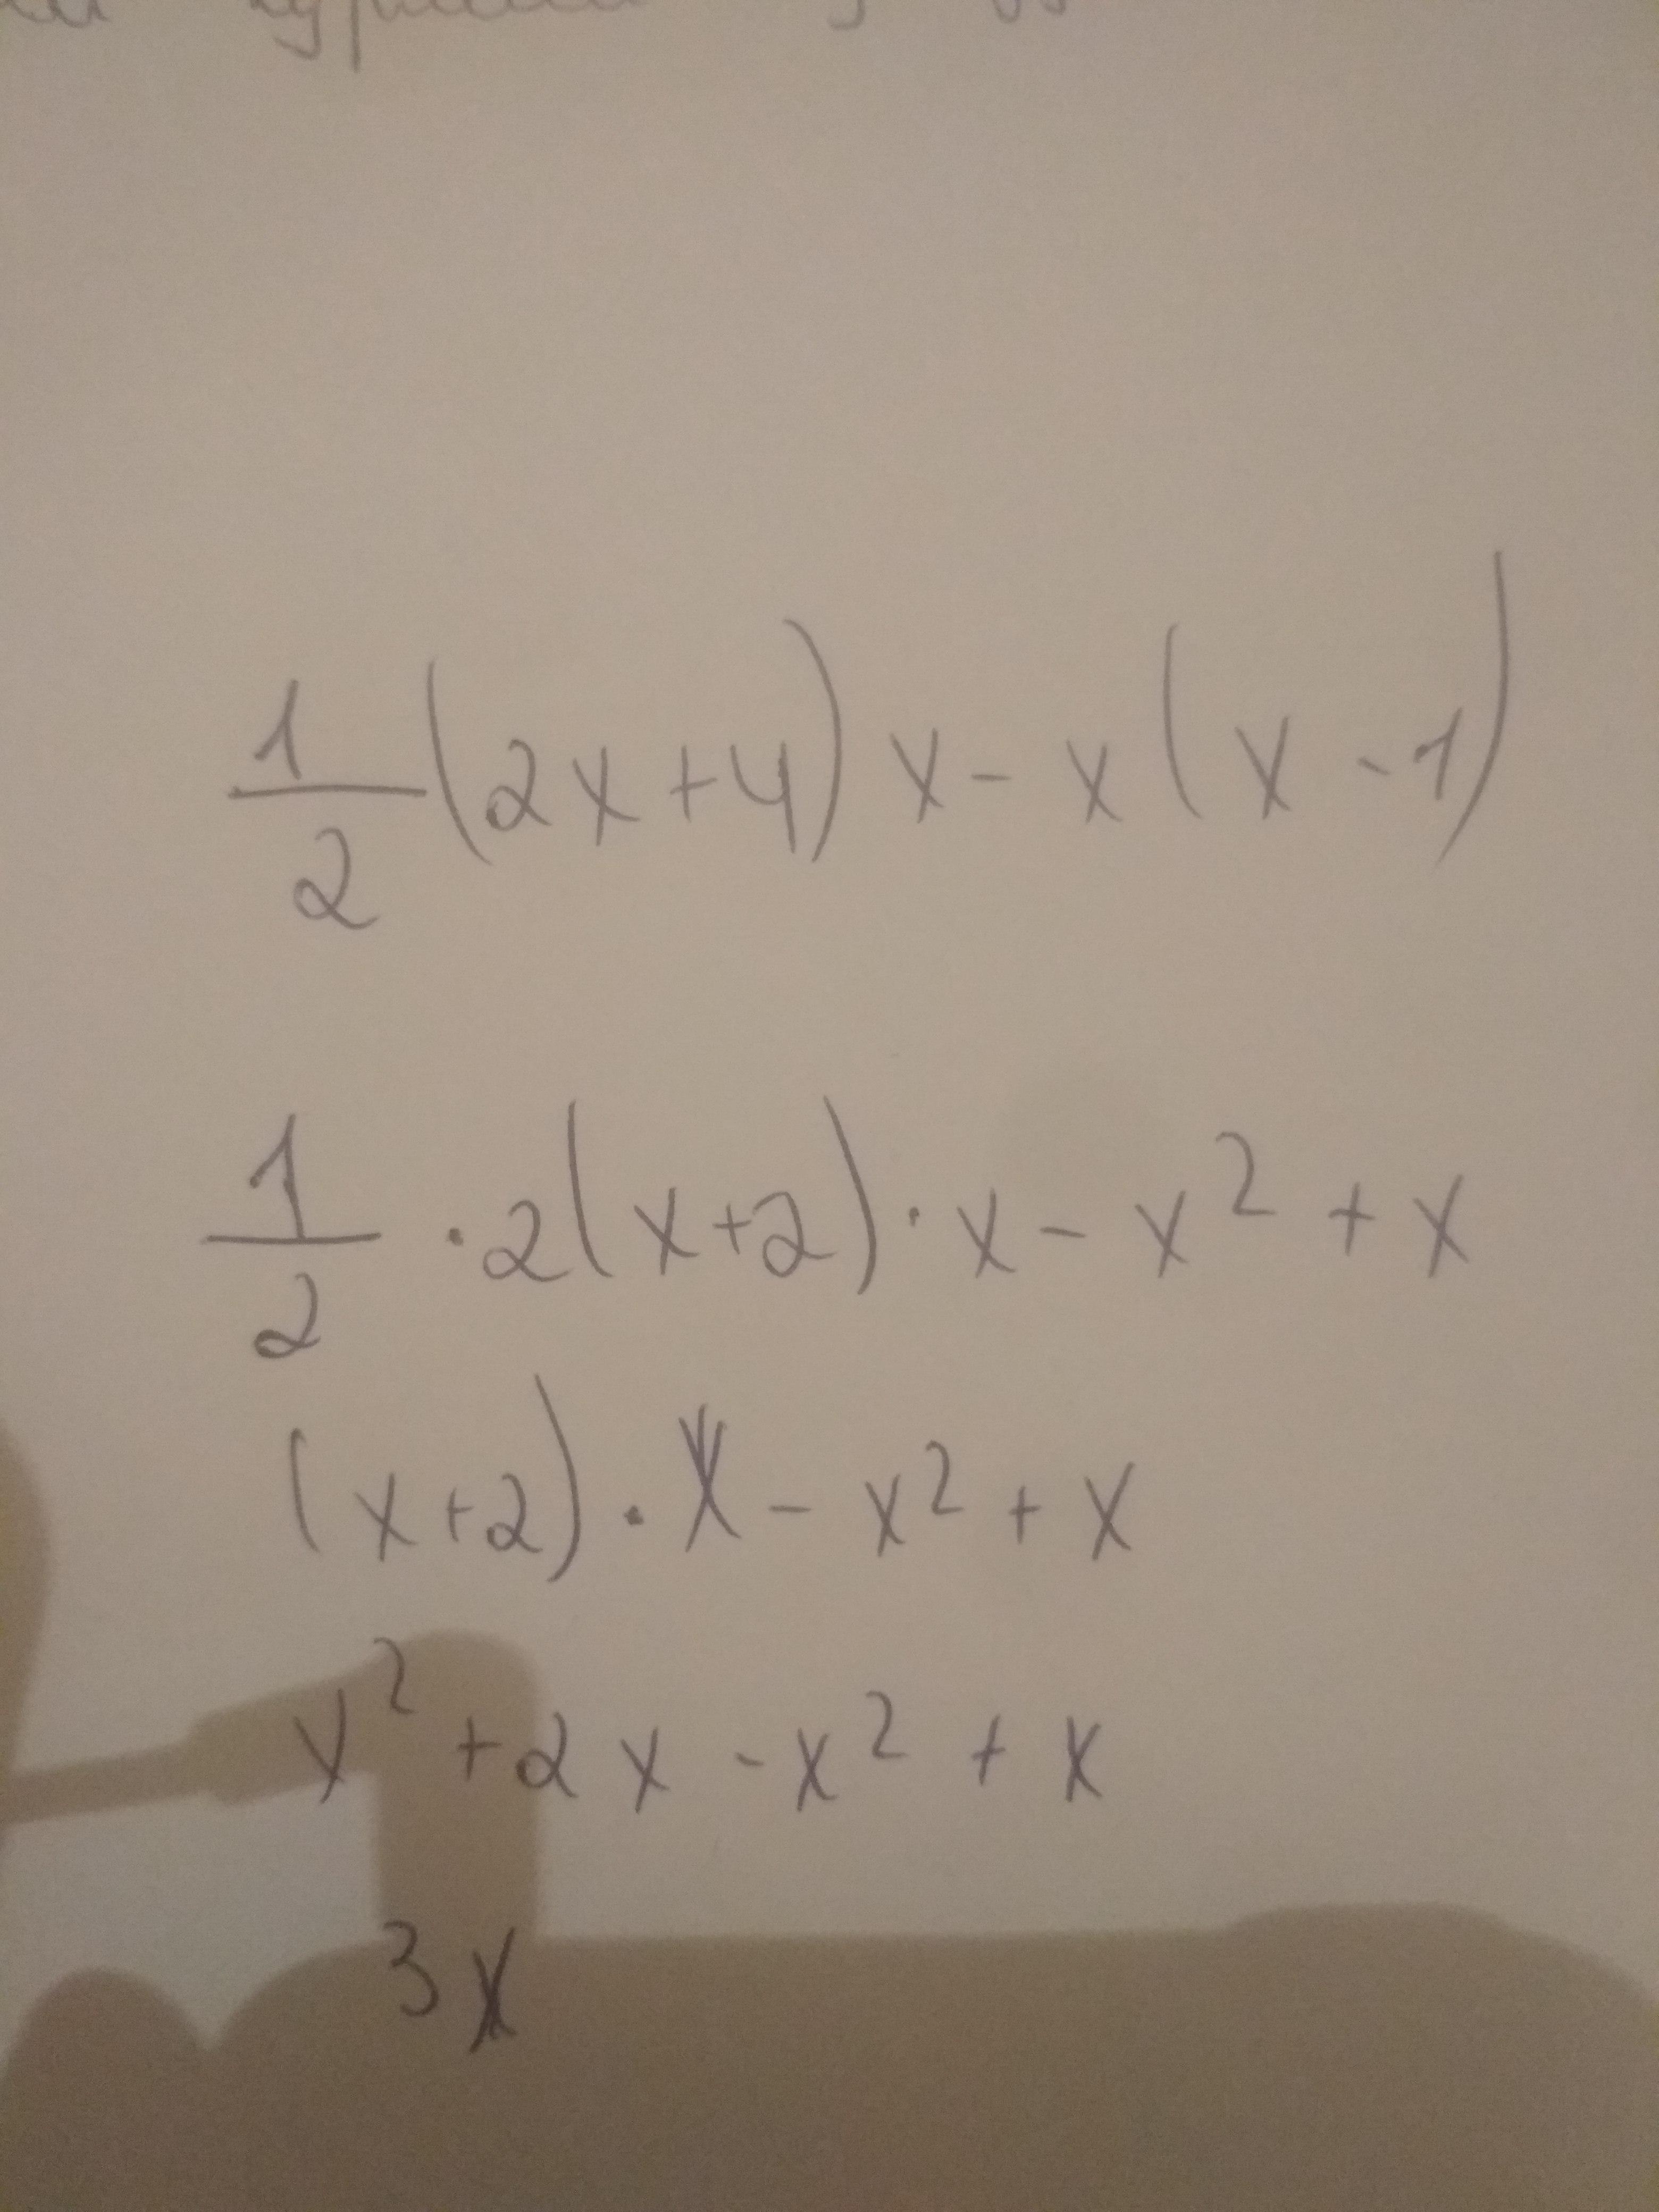 1/2 (2x+4) x - x (x - 1)
1/2 · 2(x+2) · x - x² + x
(x+2) · x - x² + x
x² + 2x - x² + x
3x